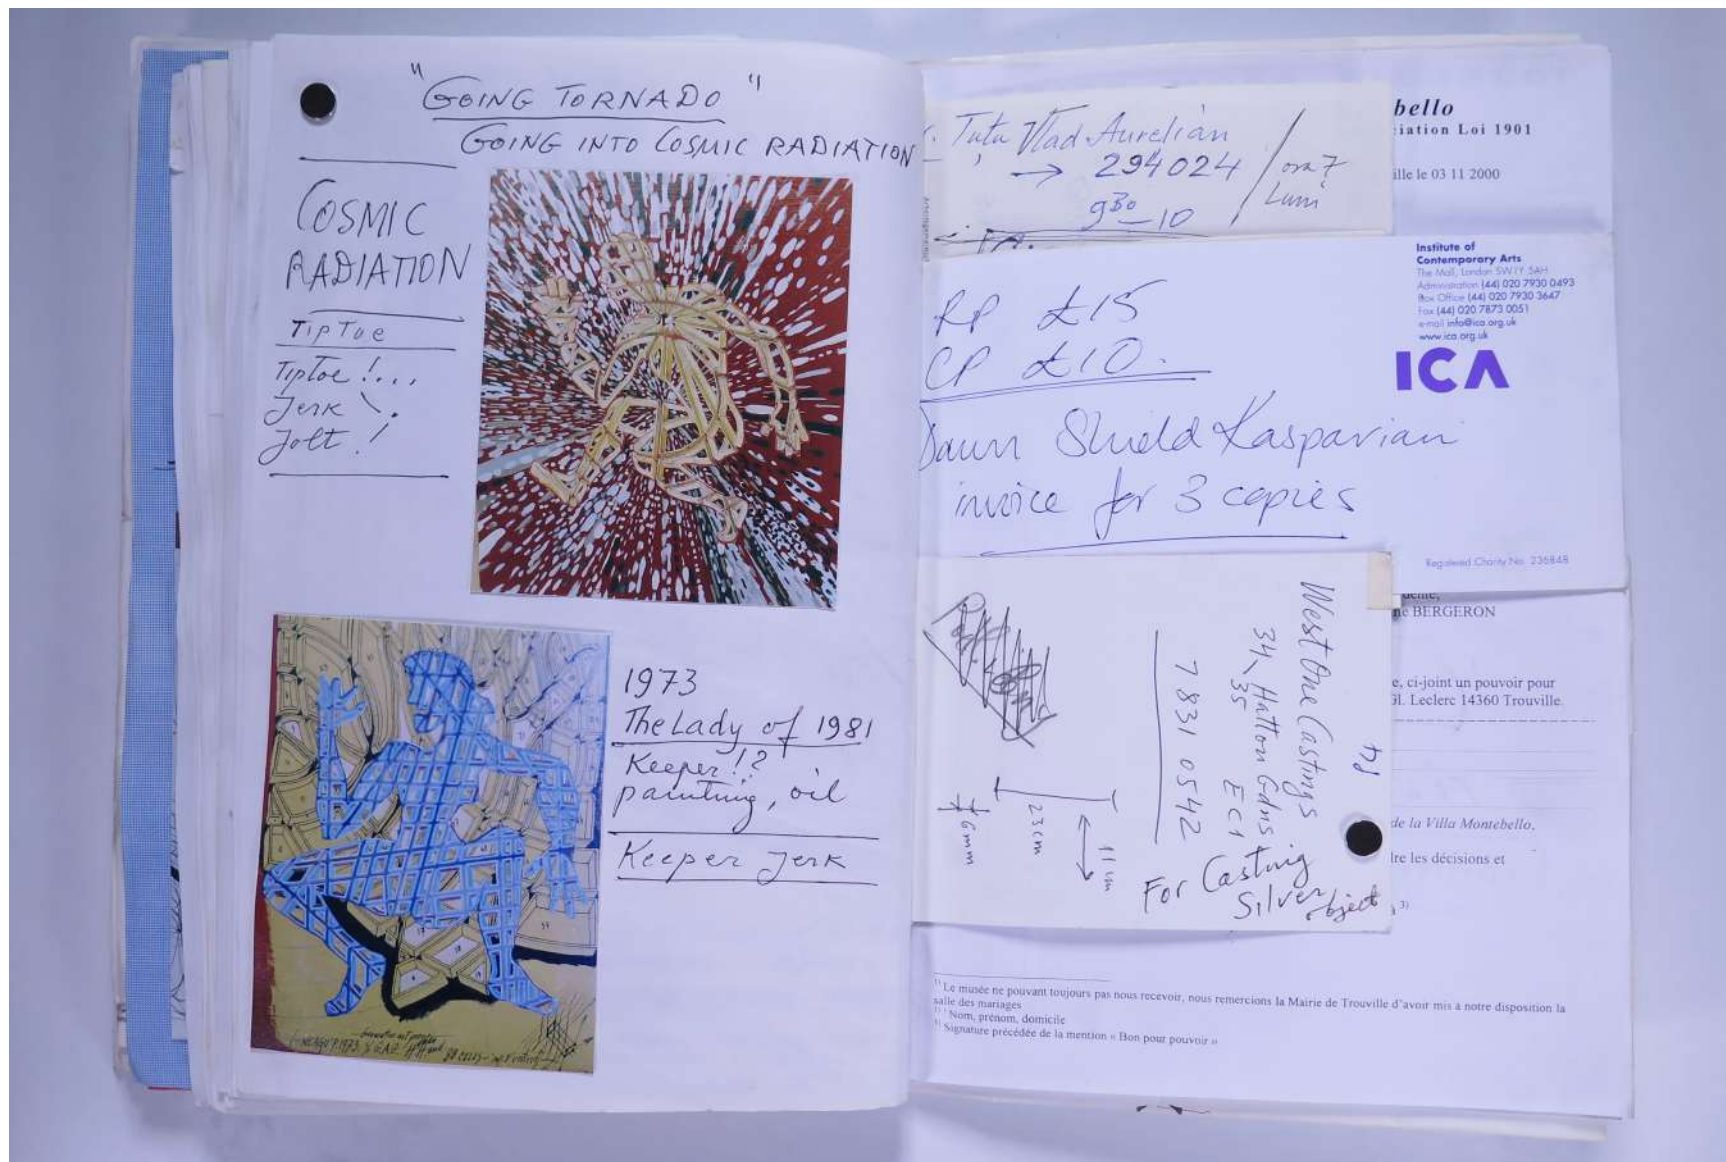 "GOING TORNADO"
GOING INTO COSMIC RADIATION
COSMIC
RADIATION
TIPTOE
TipToe !...
Jerk \.
Jolt !
1973
The Lady of 1981
Keeper !?
painting, oil
Keeper Jerk
Tutu Vlad Aurelian
→ 294024 / ora 7
Luni
9 30 – 10
bello
iation Loi 1901
ille le 03 11 2000
Institute of
Contemporary Arts
The Mall, London SW1Y 5AH
Administration (44) 020 7930 0493
Box Office (44) 020 7930 3647
Fax (44) 020 7873 0051
e-mail info@ica.org.uk
www.ica.org.uk
ICA
RP £15
CP £10.
Dawn Shield Kasparian
invoice for 3 copies
Registered Charity No. 236848
West One Castings
34, Hatton Gdns
35 EC1
7831 0542
For Casting
Silver object
23 cm
6mm
BERGERON
e, ci-joint un pouvoir pour
Gl. Leclerc 14360 Trouville.
de la Villa Montebello,
dre les décisions et
3)
1) Le musée ne pouvant toujours pas nous recevoir, nous remercions la Mairie de Trouville d'avoir mis à notre disposition la
salle des mariages
2) Nom, prénom, domicile
3) Signature précédée de la mention « Bon pour pouvoir »